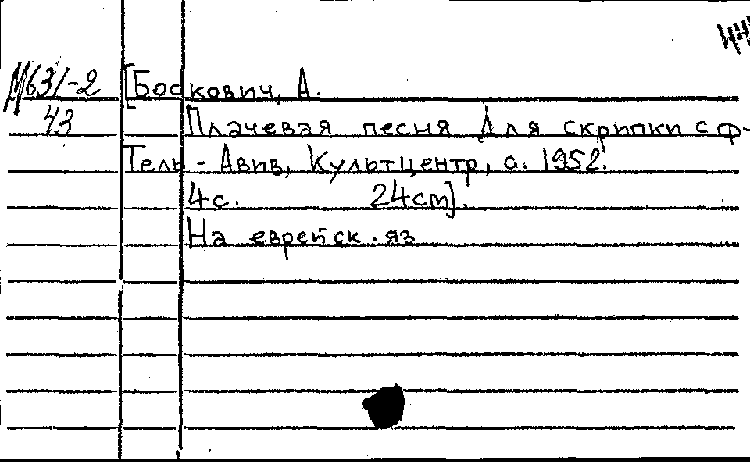 М63/-2 [Боскович, А.
43 Плачевая песня Для скрипки с ф-
Тель-Авив, Культцентр, a. 1952.
4с. 24cm].
На еврейск. яз